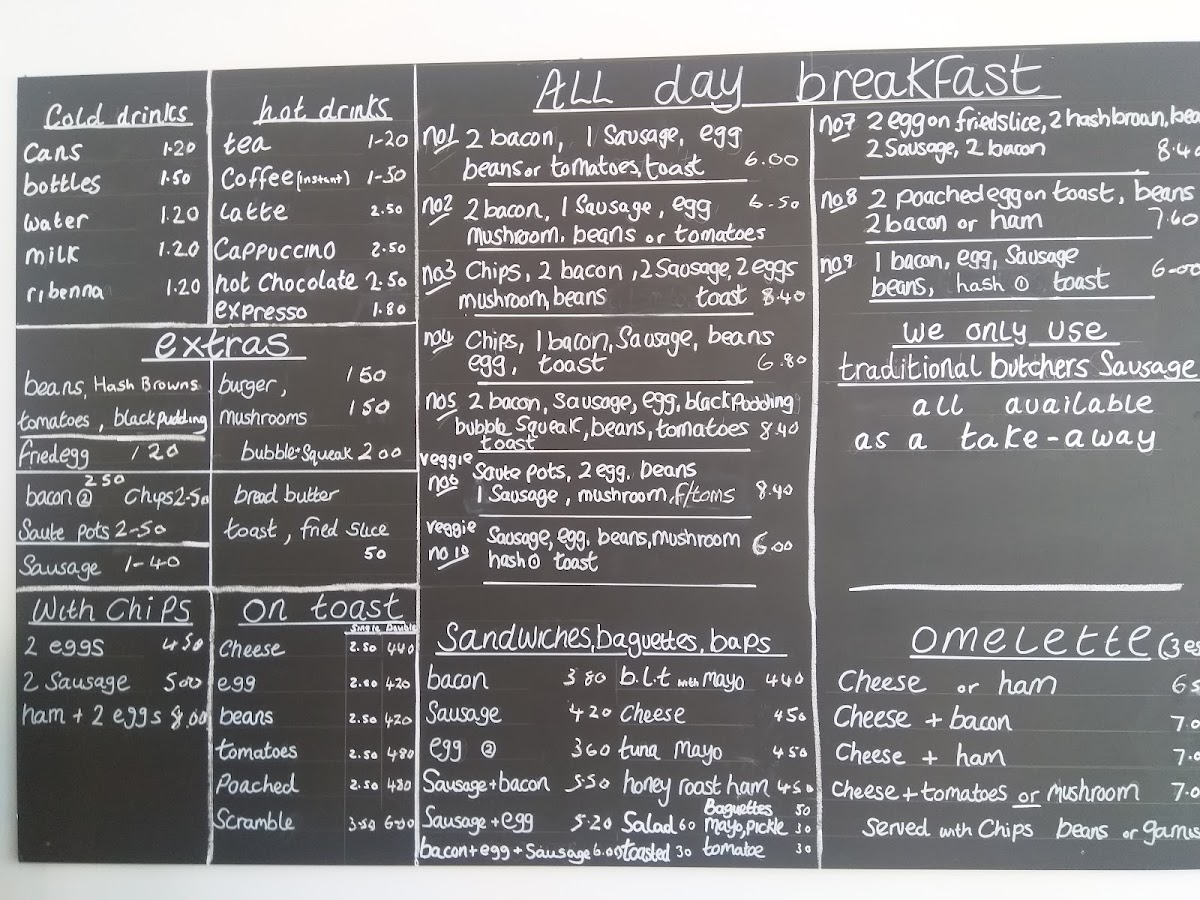 Cold drinks
Cans 1.20
bottles 1.50
water 1.20
milk 1.20
ribenna 1.20
hot drinks
tea 1-20
Coffee (instant) 1-50
Latte 2.50
Cappuccino 2.50
hot Chocolate 2.50
expresso 1.80
extras
beans, Hash Browns
tomatoes, black pudding
Fried egg 1 20
burger, 1 50
mushrooms 1 50
bubble+Squeak 2 00
250
bacon ② Chips 2-50
Saute Pots 2-50
Sausage 1-40
bread butter
toast, fried slice
50
With Chips
2 eggs 450
2 Sausage 500
ham + 2 eggs 8.00
on toast
Single Double
Cheese 2.50 440
egg 420
beans 2.50 420
tomatoes 2.50 480
Poached 2.50 480
Scramble 3.50 6.00
ALL day breakfast
no1 2 bacon, 1 Sausage, egg
beans or tomatoes, toast 6.00
no2 2 bacon, 1 Sausage, egg 6.50
mushroom. beans or tomatoes
no3 Chips, 2 bacon, 2 Sausage, 2 eggs
mushroom, beans toast 8.40
no4 Chips, 1 bacon, Sausage, beans
egg, toast 6.80
no5 2 bacon, Sausage, egg, black Pudding
bubble Squeak, beans, tomatoes 8.40
toast
veggie no6 Saute pots, 2 egg, beans
1 Sausage, mushroom, F/toms 8.40
veggie no 10 Sausage, egg, beans, mushroom 6.00
hash ① toast
no7 2 egg on fried slice, 2 hash brown,
2 Sausage, 2 bacon 8.40
no8 2 poached egg on toast, beans
2 bacon or ham 7.60
no9 1 bacon, egg, Sausage 6.00
beans, hash ① toast
we only use
traditional butchers Sausage
all available
as a take-away
Sandwiches, baguettes, baps
bacon 3 80
Sausage 4 20
egg ② 3 60
Sausage + bacon 5.50
Sausage + egg 5.20
bacon + egg + Sausage 6.00
b.l.t with mayo 440
Cheese 450
tuna mayo 450
honey roast ham 450
Baguettes 50
Salad 60 Mayo, Pickle 30
toasted 30 tomatoe 30
omelette
Cheese or ham
Cheese + bacon
Cheese + ham
Cheese + tomatoes or mushroom
Served with Chips beans or